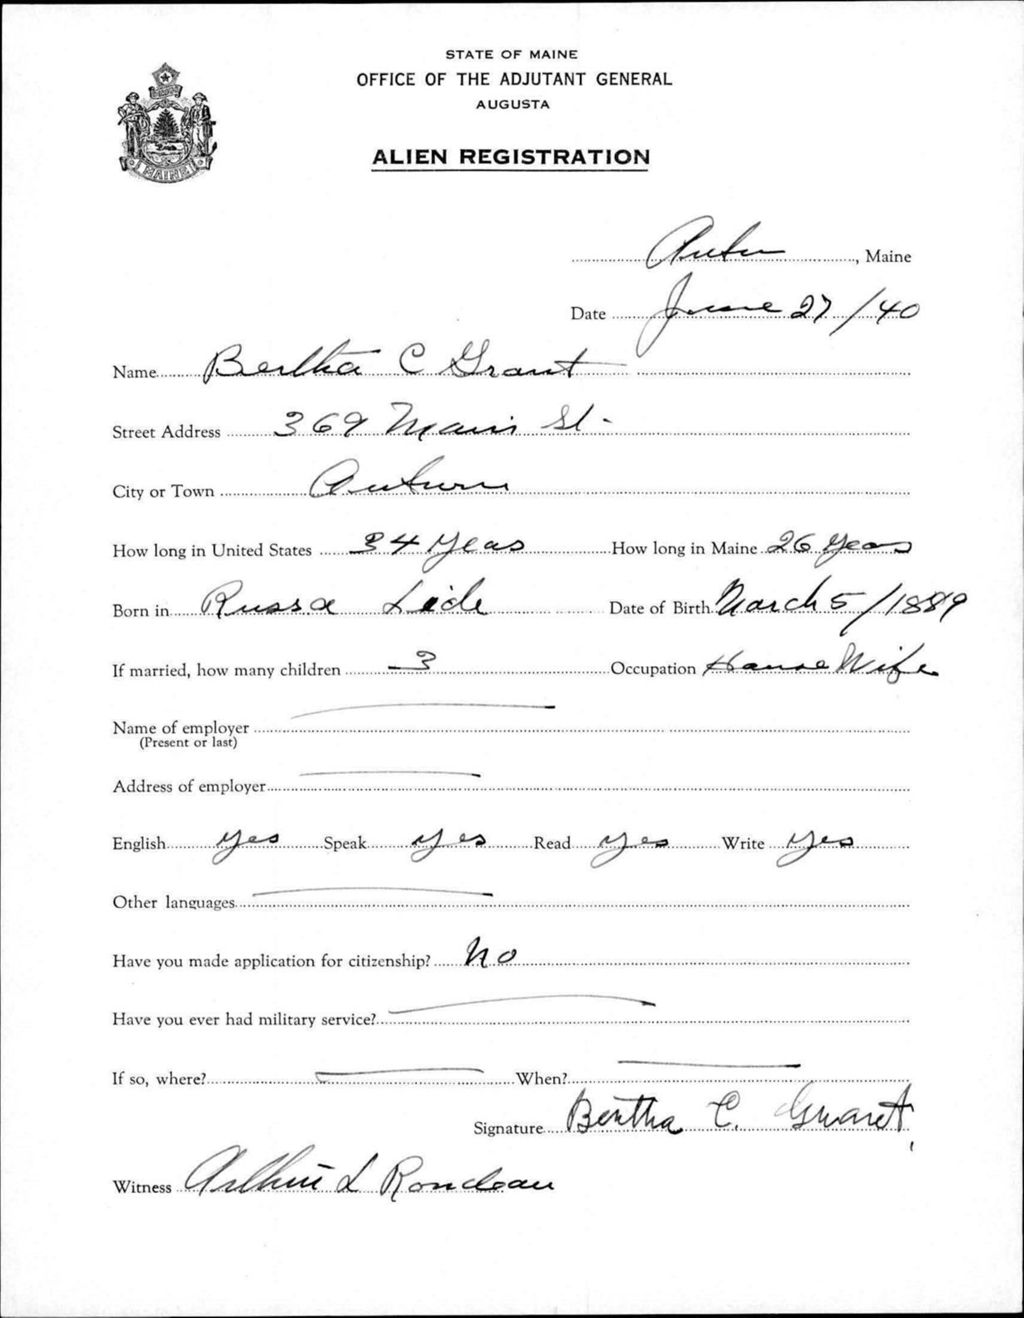 STATE OF MAINE
OFFICE OF THE ADJUTANT GENERAL
AUGUSTA
ALIEN REGISTRATION
MAINE
Auburn, Maine
Date June 27/40
Name Bertha C Grant
Street Address 369 Main St.
City or Town Auburn
How long in United States 34 Years How long in Maine 26 Years
Born in Russa Date of Birth March 5/1889
If married, how many children 3 Occupation House Wife
Name of employer
(Present or last)
Address of employer
English yes Speak yes Read yes Write yes
Other languages
Have you made application for citizenship? No
Have you ever had military service?
If so, where? When?
Signature Bertha C. Grant
Witness Arthur L Rondeau